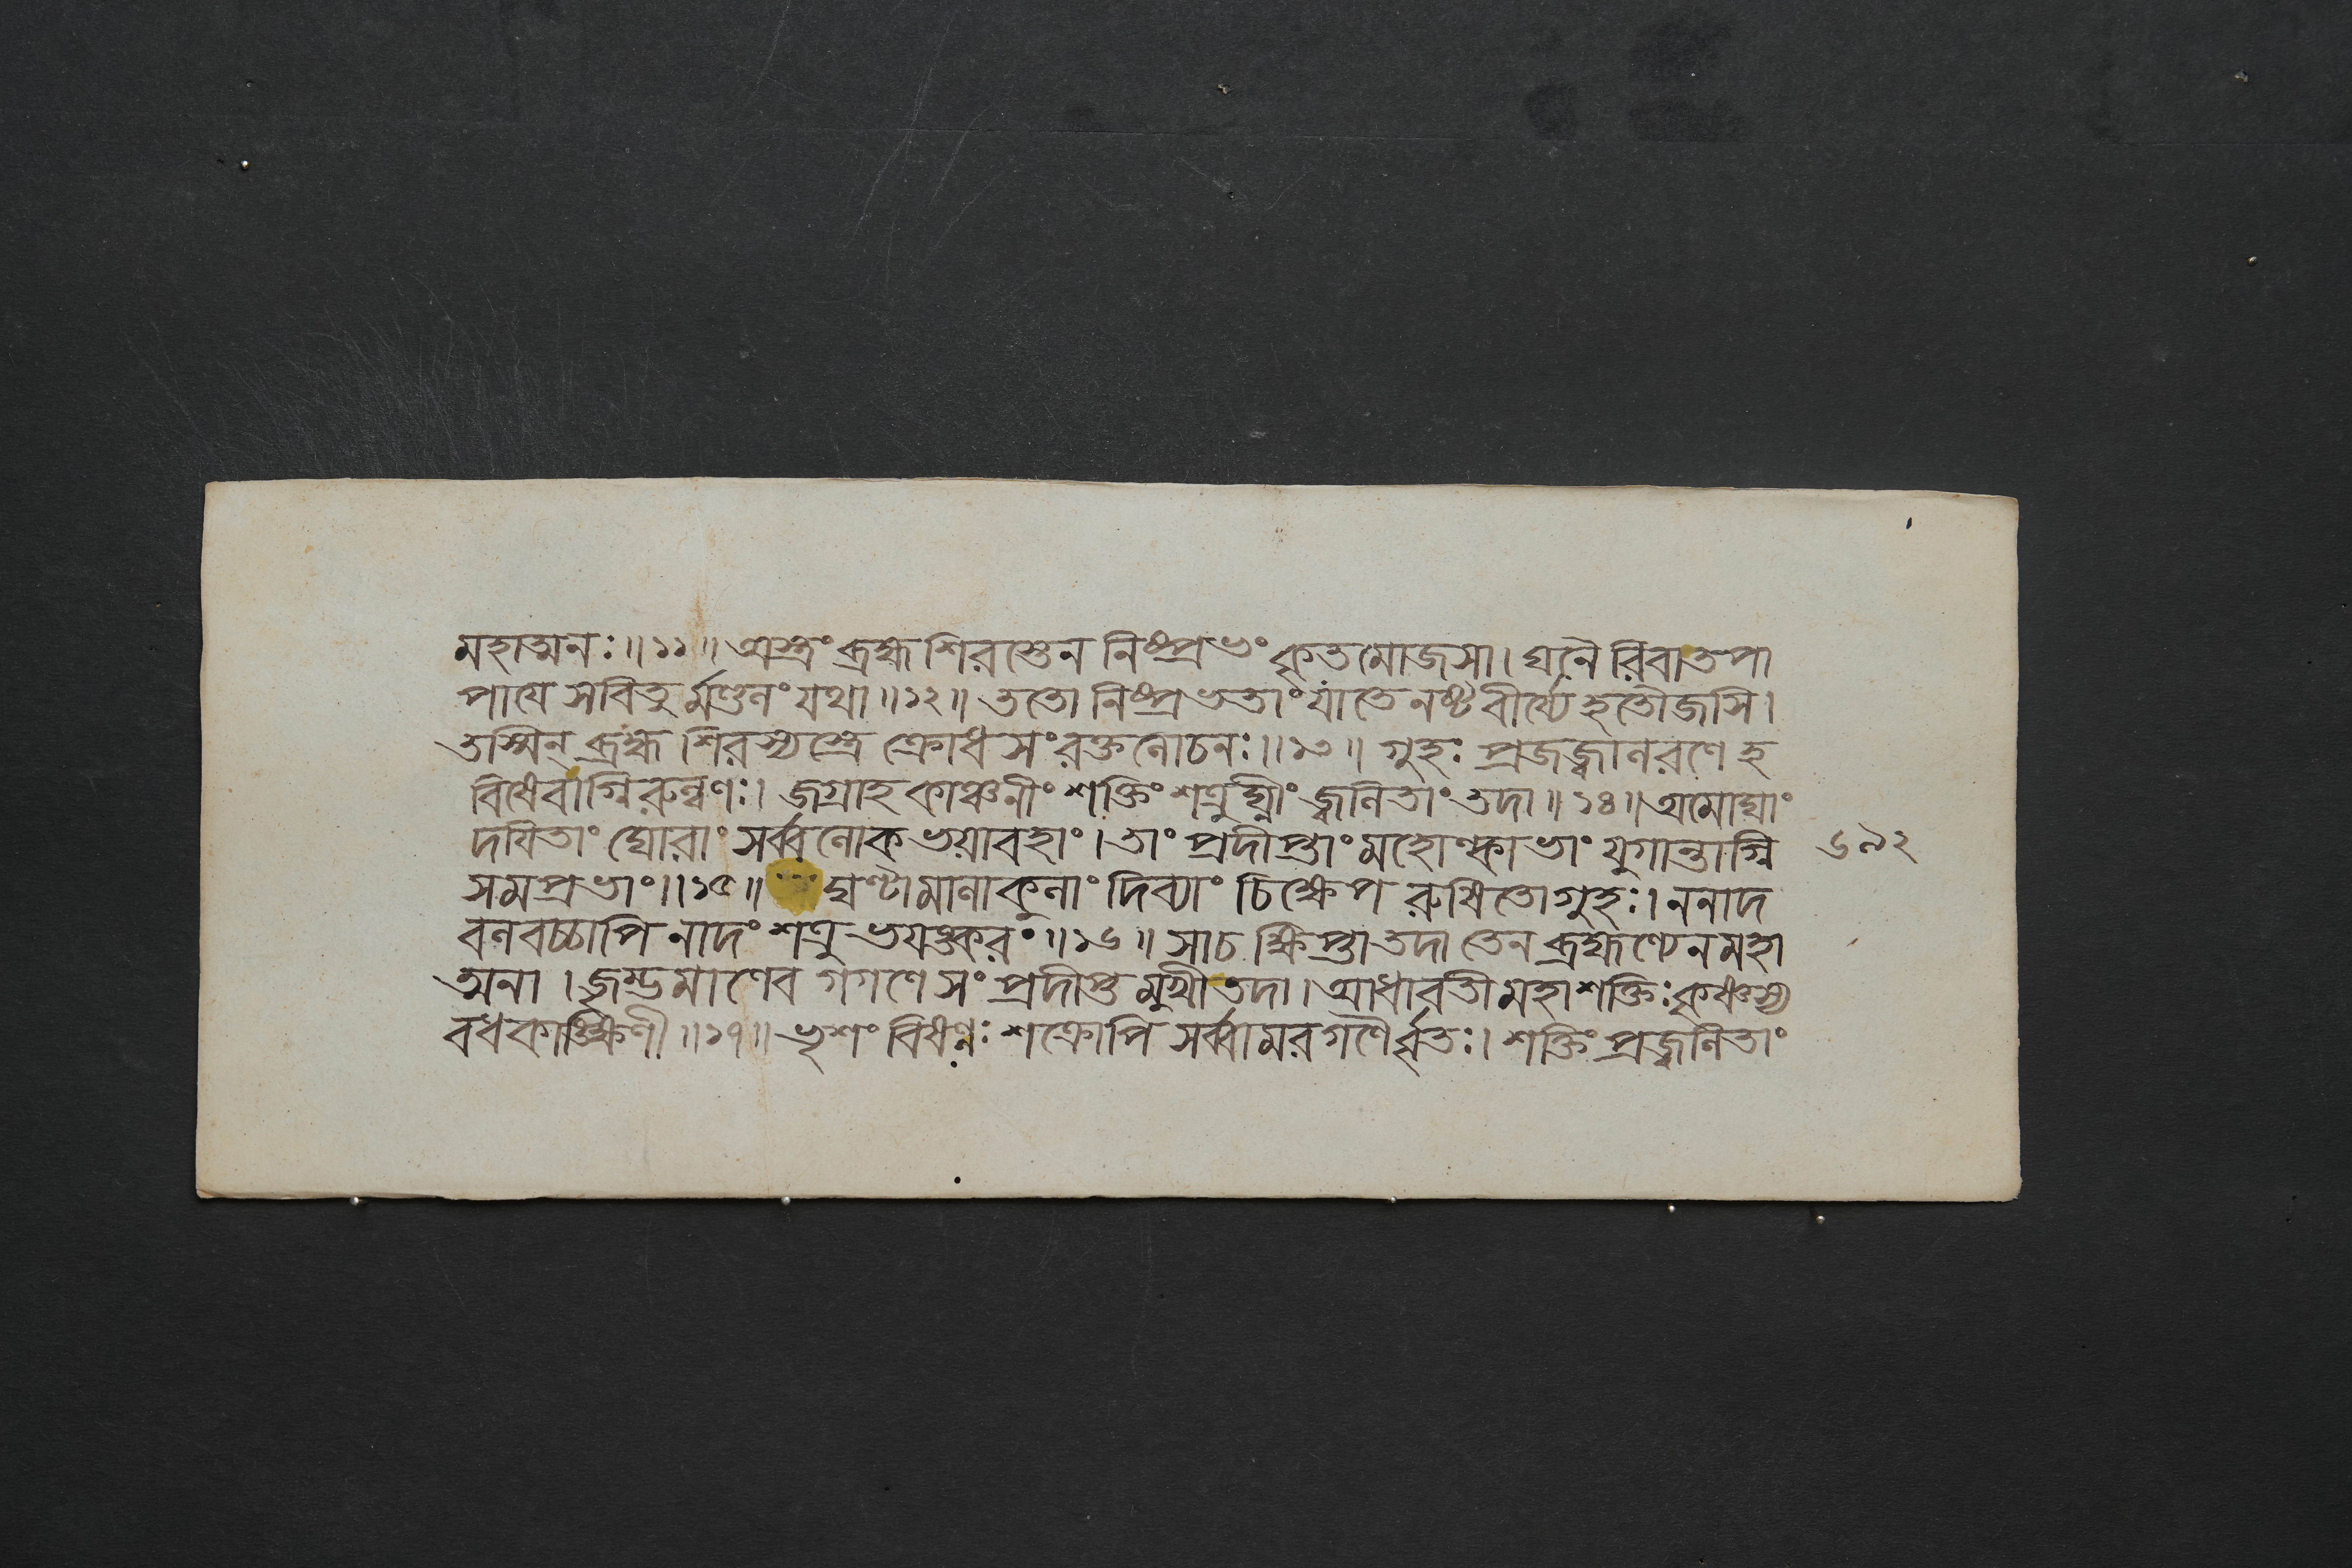 মহাত্মনঃ॥১১॥ অস্ত্রং ব্রহ্ম শিরস্তেন নিষ্প্রভং কৃতমোজসা। ঘনৈ রিবাতপা
পাযে সবিতু র্মণ্ডলং যথা॥১২॥ ততো নিষ্প্রভতাং যাতে নষ্টবীর্য্যে হৃতৌজসি।
তস্মিন্ ব্রহ্ম শিরস্যস্ত্রে ক্রোধ সংরক্তলোচনঃ॥১৩॥ গুহঃ প্রজজ্বালরণে হ
বিষেবাগ্নিরুল্বণঃ। জগ্রাহ কাঞ্চনীং শক্তিং শত্রুঘ্নীং জ্বলিতাং তদা॥১৪॥ অমোঘাং
দযিতাং ঘোরাং সর্ব্বলোক ভয়াবহাং। তাং প্রদীপ্তাং মহোল্কাভাং যুগান্তাগ্নি
সমপ্রভাং॥১৫॥ ঘণ্টামালাকুলাং দিব্যাং চিক্ষেপ রুষিতো গুহঃ। ননাদ
বলবচ্চাপি নাদং শত্রু ভযঙ্করং॥১৬॥ সাচ ক্ষিপ্তা তদা তেন ব্রহ্মণ্যেন মহা
ত্মনা। জৃম্ভমাণেব গগণে সং প্রদীপ্ত মুখী তদা। আধাবতী মহাশক্তিঃ কৃষ্ণস্য
বধকাঙ্ক্ষিণী॥১৭॥ ভৃশং বিষণ্ণঃ শক্রোপি সর্ব্বামরগণৈর্বৃতঃ। শক্তিং প্রজ্বলিতাং
৬৯২